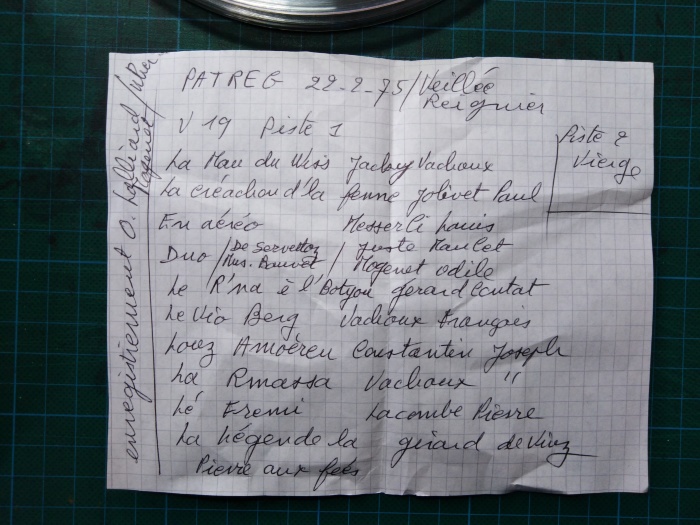 PATREG 22-2-75 / Veillée
Reignier
V 19 Piste 1
Piste 2
Vierge
La Mau du Vachoux
La créachon d'la fenne Jolivet Paul
En aéréo Messerli Louis
Duo / De Servettaz / Juste Maulet
Mus. Bouvet / Mogenet Odile
Le R'na è l'Botyou Gérard Coutat
Le Vio Berg Vachoux François
Louz Amoéreu Constantin Joseph
La Rmassa Vachoux "
Lé Fremi Lacombe Pierre
La Légende la gérard de Viuz
Pierre aux fées
enregistrement O. Lalliard /
Mogenet /